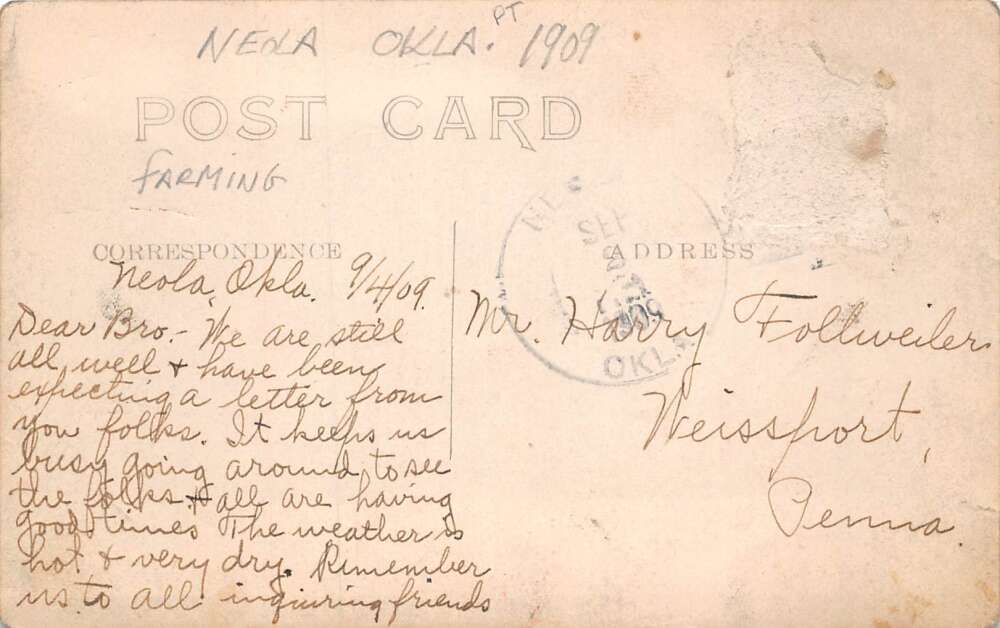 NEOLA OKLA. PT 1909
POST CARD
FARMING
CORRESPONDENCE
ADDRESS
SEP
1909
OKLA
Neola, Okla. 9/4/09.
Dear Bro.- We are still
all well + have been
expecting a letter from
you folks. It keeps us
busy going around to see
the folks + all are having
good times The weather is
hot & very dry. Remember
us to all inquiring friends
Mr. Harry Follweiler
Weissport,
Penna.